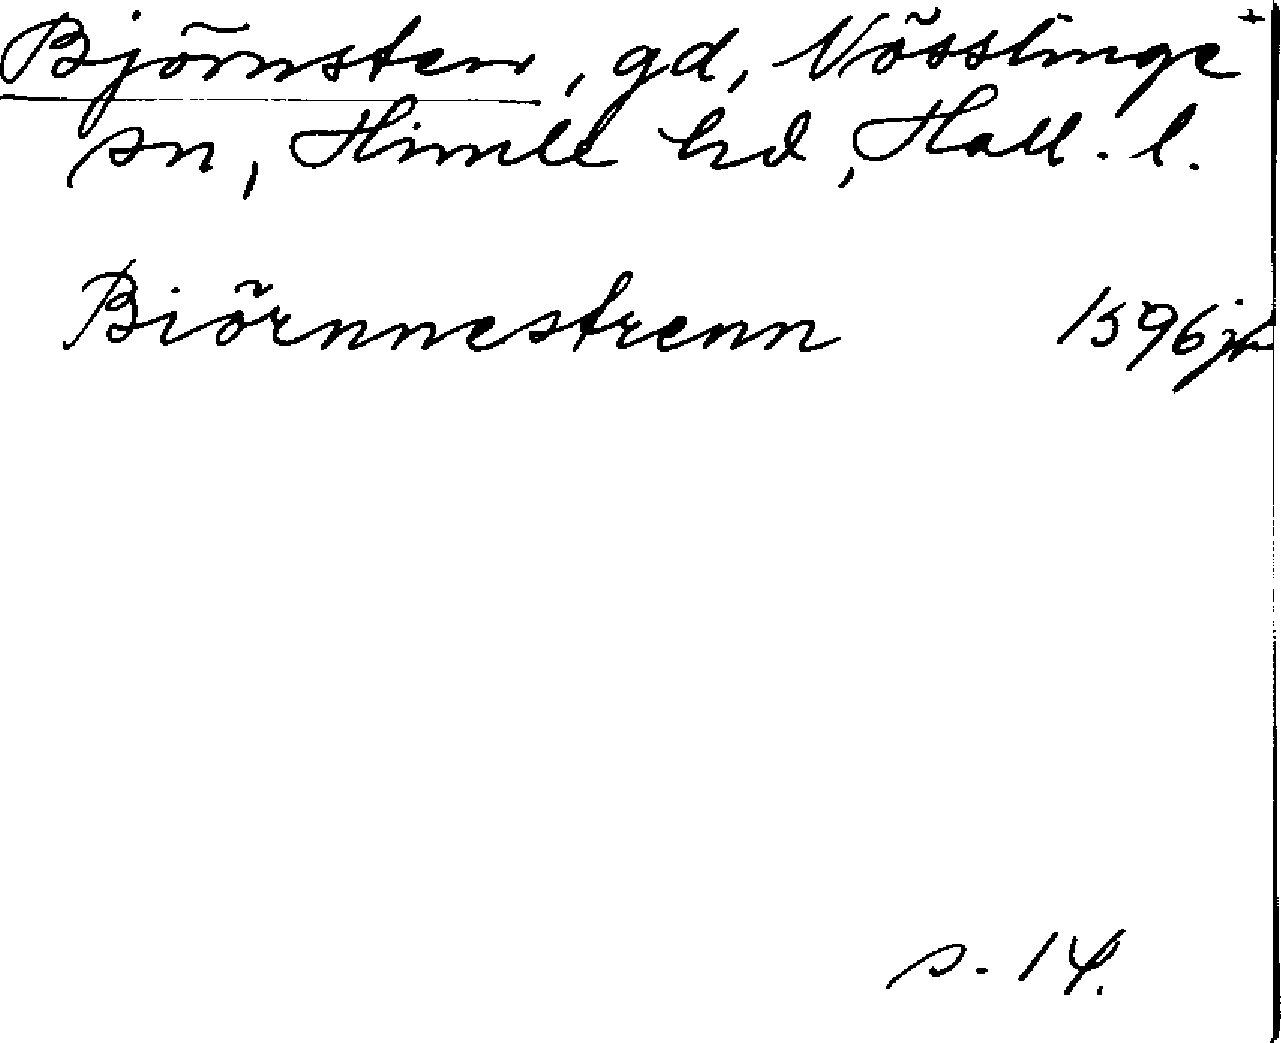 Björnsten, gd, Nösslinge +
sn, Himle hd, Hall. l.
Biörnnestrenn 1596 jb
s. 14.